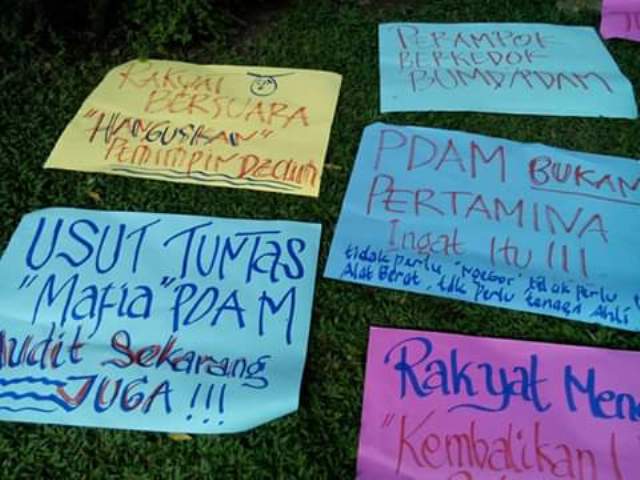 RAKYAT
BERSUARA
"HANGUSKAN"
PEMIMPIN DZOLIM
PERAMPOK
BERKEDOK
BUMD/PDAM
PDAM BUKAN
PERTAMINA
Ingat Itu !!!
tidak perlu "Ngebor" tdk perlu
Alat Berat, tdk perlu tenaga Ahli
USUT TUNTAS
"Mafia" PDAM
Audit Sekarang
JUGA !!!
Rakyat Men
"Kembalikan